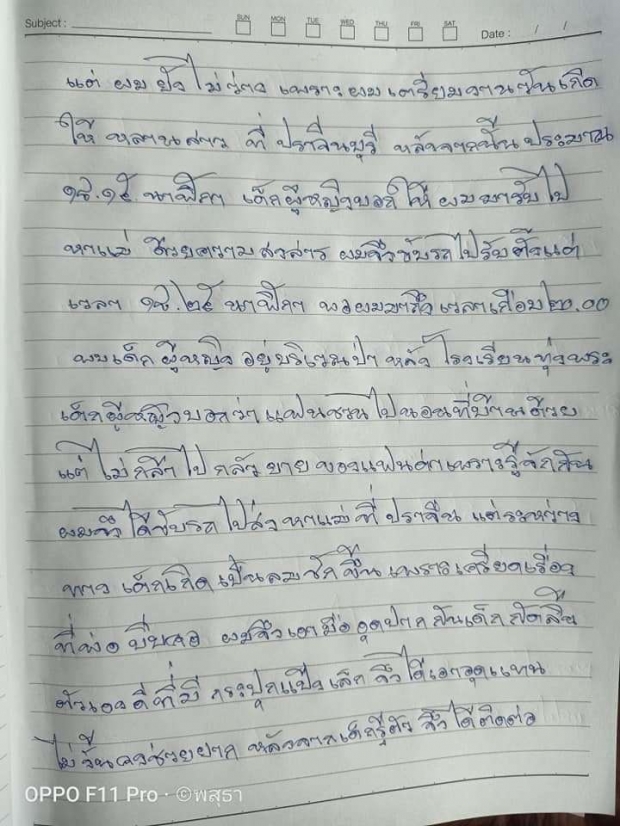 Subject :
SUN MON TUE WED THU FRI SAT
Date : / /
แต่ ผมยังไม่ว่าง เพราะผมเตรียมงานวันเกิด
ให้ หลานสาว ที่ ปราจีนบุรี หลังจากนั้นประมาณ
๑๘.๑๕ นาฬิกา เด็กผู้หญิงบอกให้ ผมมารับไป
หาแม่ ด้วยความสงสาร ผมจึงขับรถไปรับตั้งแต่
เวลา ๑๘.๒๕ นาฬิกา พอผมมาถึงเวลาเกือบ ๒๐.๐๐
พบเด็กผู้หญิง อยู่บริเวณป่า หลังโรงเรียนทุ่งพระ
เด็กผู้หญิงบอกว่า แฟนชวนไปนอนที่บ้านด้วย
แต่ ไม่กล้าไป กลัวยายของแฟนด่าเพราะรู้จักกัน
ผมจึงได้ขับรถไปส่ง หาแม่ที่ ปราจีน แต่ระหว่าง
ทาง เด็กเกิดเป็นลมชักขึ้นเพราะเครียดเรื่อง
ที่พ่อบีบคอ ผมจึงเอามืออุดปากกันเด็กกัดลิ้น
ตัวเองดีที่มี กระปุกแป้งเล็ก จึงได้เอาอุดแทน
ไม่งั้นคงช่วยยาก หลังจากเด็กรู้ตัว จึงได้ติดต่อ
OPPO F11 Pro · ©พสุธา